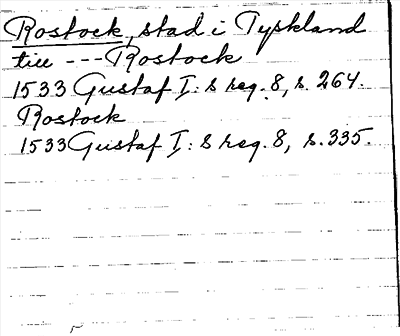 Rostock, stad i Tyskland
till --- Rostock
1533 Gustaf I: s reg. 8, s. 264.
Rostock
1533 Gustaf I: s reg. 8, s. 335.